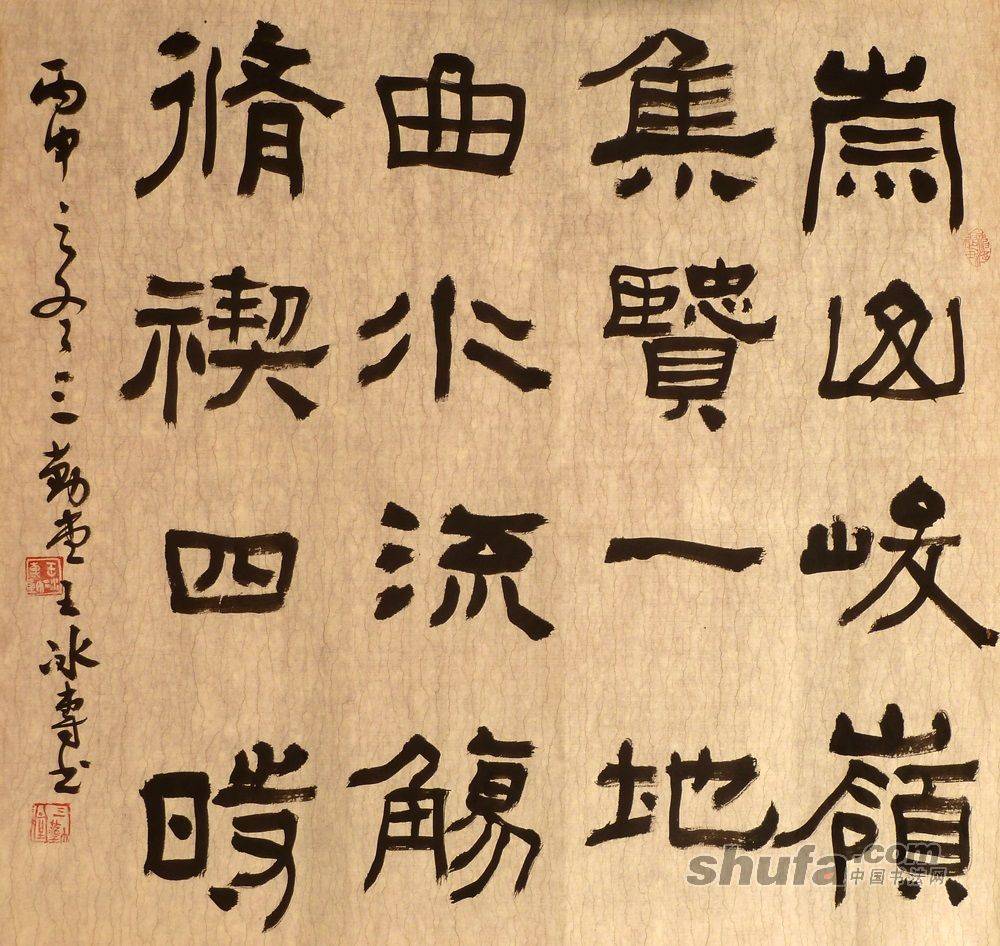 崇山峻嶺
集賢一地
曲水流觴
脩禊四時
丙申之 三勤堂主冰 书
shufa.com
中国书法网